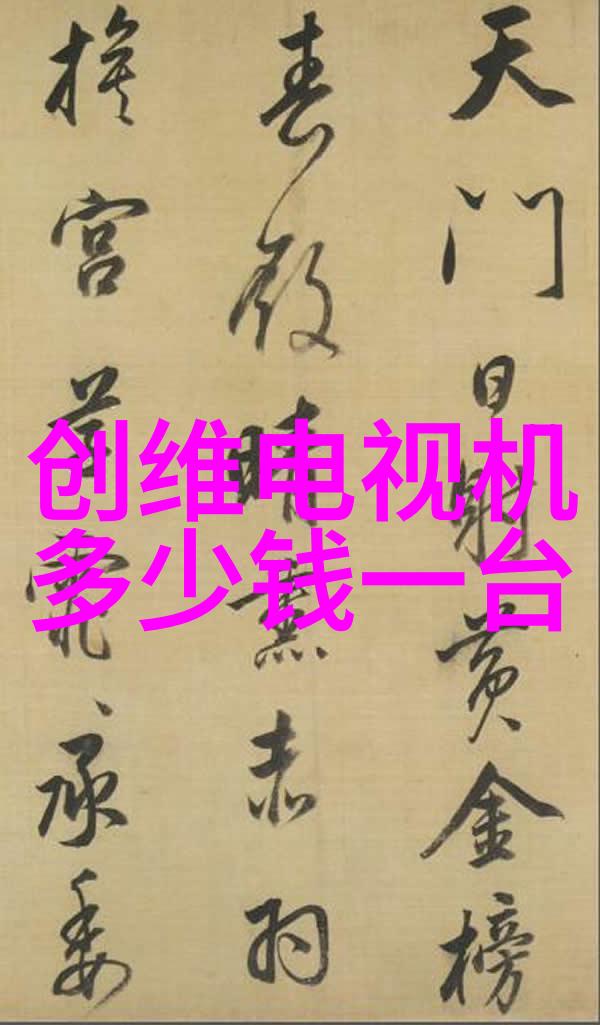 天門日射黄金榜
春殿晴熏赤羽
旗宮草霏〻承委
创维电视机
多少钱一台